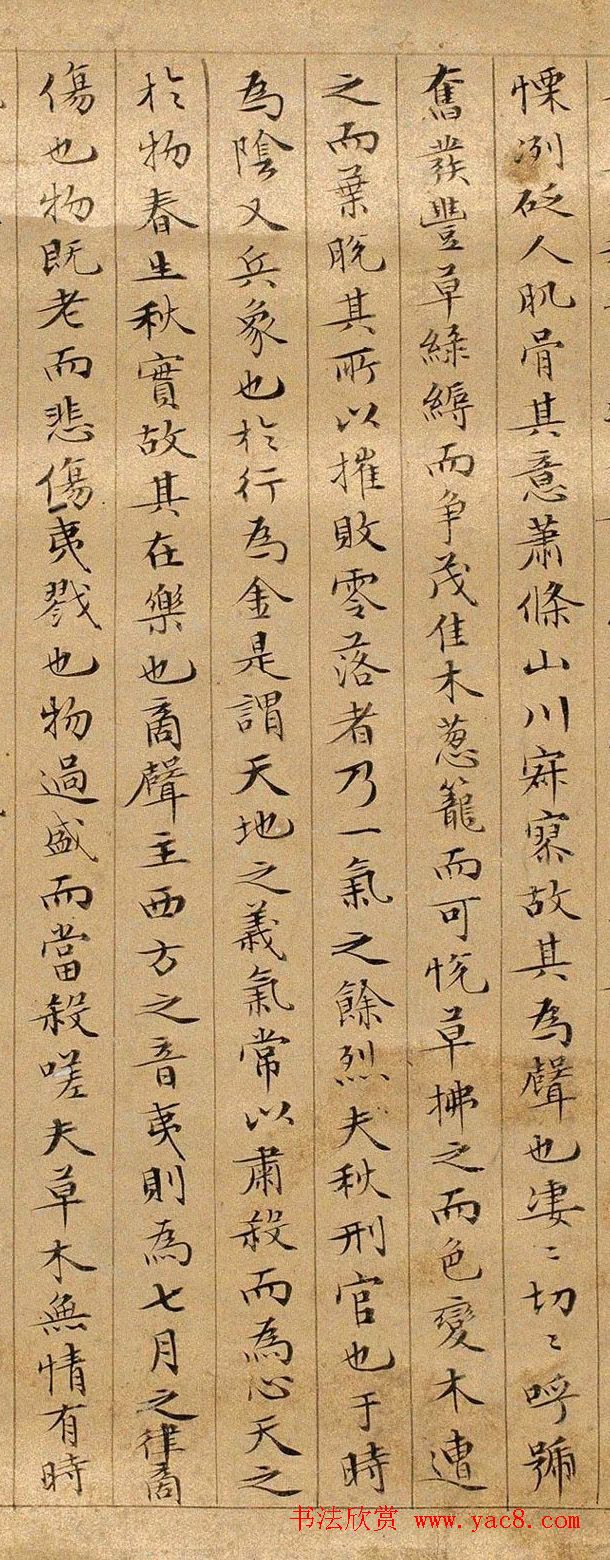 慄冽砭人肌骨其意蕭條山川寂寥故其為聲也凄〻切〻呼號
奮發豐草綠縟而争茂佳木葱籠而可悅草拂之而色變木遭
之而葉脫其所以摧敗零落者乃一氣之餘烈夫秋刑官也于時
為陰又兵象也於行為金是謂天地之義氣常以肅殺而為心天之
於物春生秋實故其在樂也商聲主西方之音夷則為七月之律商
傷也物既老而悲傷夷戮也物過盛而當殺嗟夫草木無情有時
书法欣赏 www.yac8.com